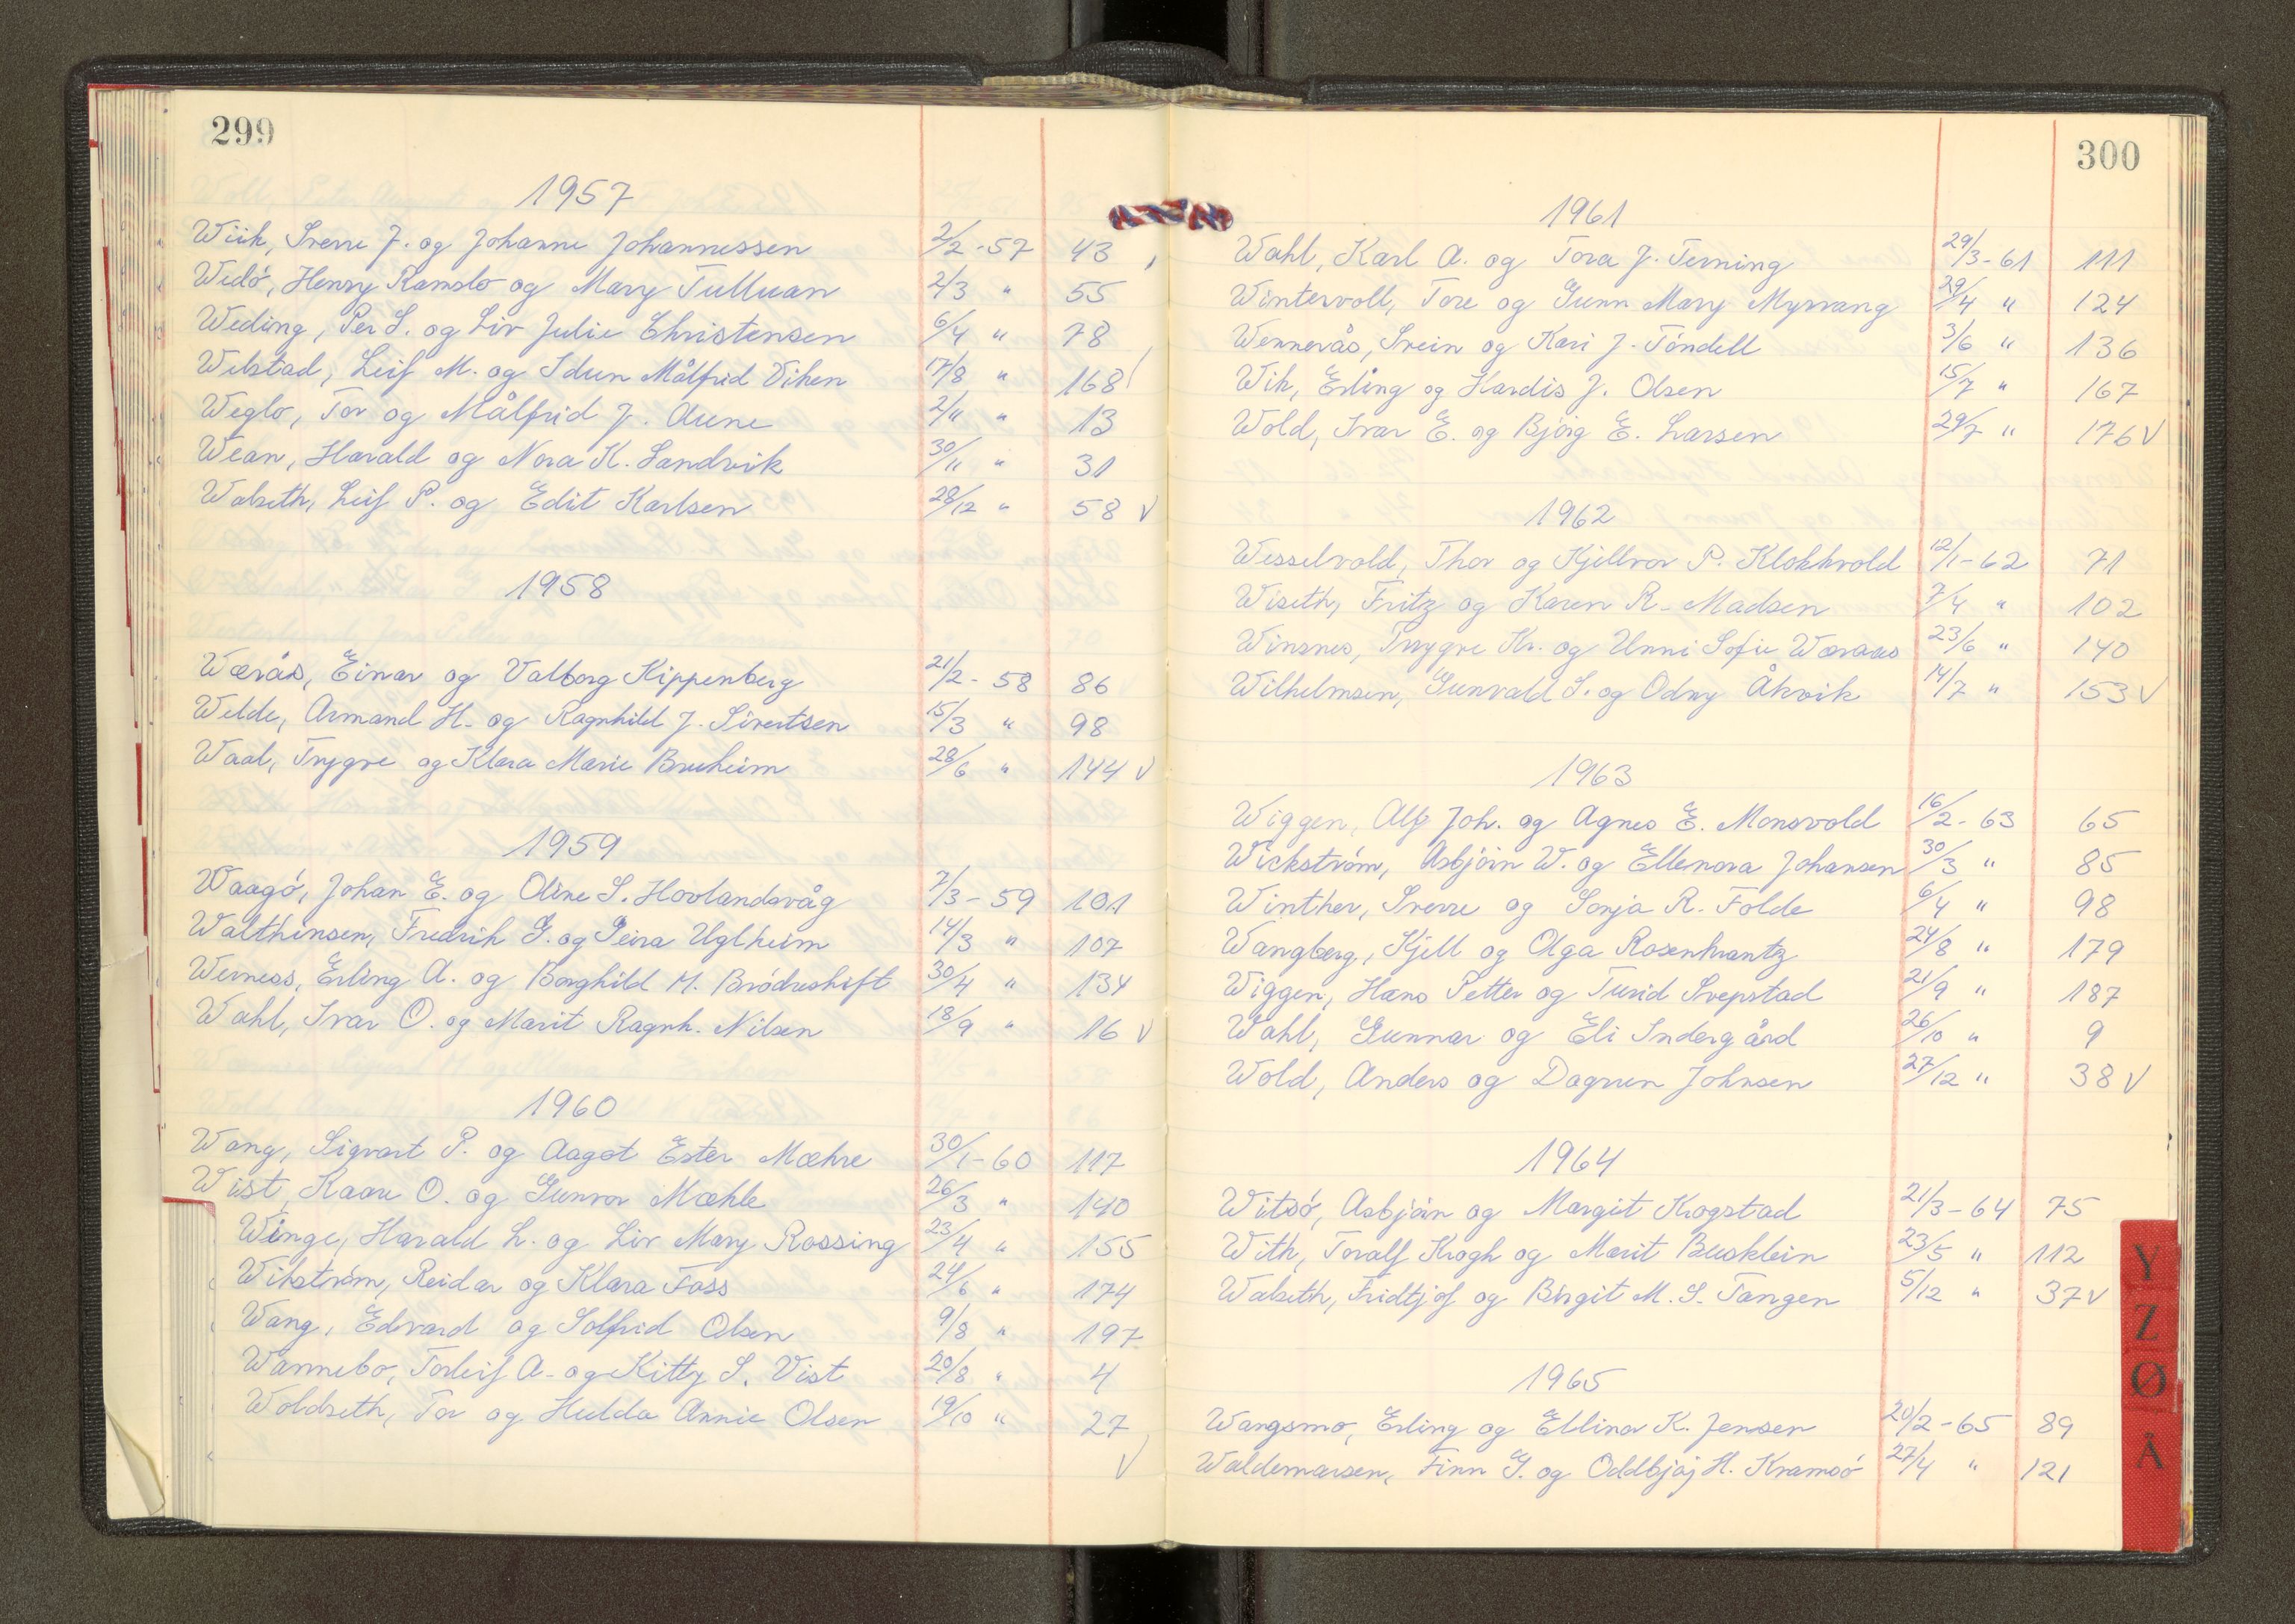 299
1957
Wiik, Sverre J. og Johanne Johannessen 2/2-57 43
Wedö, Henry Ramslo og Mary Tulluan 2/3 " 55
Weding, Per S. og Liv Julie Christensen 6/4 " 78
Welstad, Leif M. og Idun Målfrid Viken 17/8 " 168
Weglo, Tor og Målfrid J. Aune 2/11 " 13
Wean, Harald og Nora K. Sandvik 30/11 " 31
Walseth, Leif P. og Edit Karlsen 28/12 " 58 V
1958
Wærås, Einar og Valborg Kippenberg 21/2-58 86
Welde, Armand H. og Ragnhild J. Sivertsen 15/3 " 98
Waal, Trygve og Klara Marie Bruheim 28/6 " 144 V
1959
Waagö, Johan E. og Oline S. Hovlandsvåg 7/3-59 101
Walthinsen, Fredrik G. og Peira Uglheim 14/3 " 107
Werness, Erling A. og Borghild M. Brödreskift 30/4 " 134
Wahl, Ivar O. og Marit Ragnh. Nilsen 18/9 " 16 V
1960
Wang, Sigvart P. og Aagot Ester Mæhre 30/1-60 117
Wist, Kaare O. og Gunvor Mæhle 26/3 " 140
Winge, Harald L. og Liv Mary Rossing 23/4 " 155
Wikström, Reidar og Klara Foss 24/6 " 174
Wang, Edvard og Solfrid Olsen 9/8 " 197
Wannebo, Torleif A. og Kitty S. Vist 20/8 " 4
Woldseth, Tor og Hulda Annie Olsen 19/10 " 27
V
300
1961
Wahl, Karl A. og Tora J. Terning 29/3-61 111
Wintervoll, Tore og Gunn Mary Myrvang 29/4 " 124
Wennerås, Svein og Kari J. Töndell 3/6 " 136
Wik, Erling og Hardis J. Olsen 15/7 " 167
Wold, Ivar E. og Bjørg E. Larsen 29/7 " 176 V
1962
Wesselvold, Thor og Kjellvor P. Klokkvold 12/1-62 71
Wiseth, Fritz og Karen R. Madsen 7/4 " 102
Winsnes, Trygve Kr. og Unni Sofie Woraas 23/6 " 140
Wilhelmsen, Gunvald S. og Odny Åkvik 14/7 " 153 V
1963
Wiggen, Alf Joh. og Agnes E. Monsvold 16/2-63 65
Wickström, Asbjörn W. og Ellenora Johansen 30/3 " 85
Winther, Sverre og Sonja R. Folde 6/4 " 98
Wangberg, Kjell og Olga Rosenkrantz 24/8 " 179
Wiggen, Hans Petter og Turid Svepstad 21/9 " 187
Wahl, Gunnar og Eli Indergård 26/10 " 9
Wold, Anders og Dagrun Johnsen 27/12 " 38 V
1964
Witsö, Asbjörn og Margit Krogstad 21/3-64 75
With, Toralf Krogh og Marit Busklein 23/5 " 112
Walseth, Fridtjof og Birgit M. S. Tangen 5/12 " 37 V
1965
Wangsmo, Erling og Ellinor K. Jensen 20/2-65 89
Waldemarsen, Finn G. og Oddbjøj H. Kramsö 27/4 " 121
Y
Z
Ø
Å